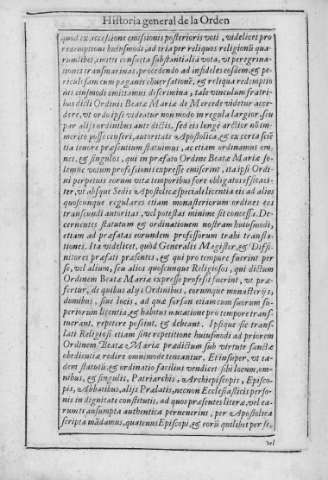 Historia general de la Orden
quod ex accessione emissionis posterioris voti, videlicet pro
redemptione huiusmodi, ad tria per reliquos religionū qua-
rumlibet, emitti consueta substantialia vota, vt peregrina-
tiones transmarinas, procedendo ad infideles eosdem, & pe-
riculosam cum paganis conuersationē, & reliqua redemptio-
nis eiusmodi emittamus discrimina, tale vinculum fratri-
bus dicti Ordinis Beatæ Mariæ de Mercede videtur acce-
dere, vt ordo ipsi videatur non modo in regula largior, seu
par alijs ordinibus ante dictis, sed eis longè arctior non im-
merito posse censeri, autoritate Apostolica, & ex certa sciē-
tia tenore præsentium statuimus, ac etiam ordinamus om-
nes, & singulos, qui in præfato Ordine Beatæ Mariæ so-
lemne votum professionis expresse emiserint, ita ipsi Ordi-
ni perpetuis eorum vita temporibus fore obligatos efficaci-
ter, vt absque Sedis Apostolicæ speciale licentia eis ad alios
quoscunque regulares etiam monasteriorum ordines eos
transeundi autoritas, vel potestas minime sit concessa. De-
cernentes statutum & ordinationem nostram huiusmodi,
etiam ad præfatas eorundem professorum trahi transla-
tiones. Ita videlicet, quòd Generalis Magister, & Diffi-
nitores præfati præsentes, & qui pro tempore fuerint per
se, vel alium, seu alios quoscunque Religiosos, qui dictum
Ordinem Beatæ Mariæ expresse professi fuerint, vt præ-
fertur, de quibus alijs Ordinibus, eorumque monasterijs,
domibus, siue locis, ad quæ forsan etiam cum suorum su-
periorum licentia, & habitus mutatione pro tempore trans-
tuerant, repetere possint, & debeant. Ipsique sic trans-
lati Religiosi etiam sine repetitione huiusmodi ad priorem
Ordinem Beatæ Mariæ prædictum sub virtute sanctæ
obedientiæ redire omnimode teneantur. Et insuper, vt ea-
dem statutū, & ordinatio facilius vendicet sibi locum, om-
nibus, & singulis, Patriarchis, Archiepiscopis, Episco-
pis, Abbatibus, alijs Prælatis, necnon Ecclesiasticis perso-
nis in dignitate constitutis, ad quos præsentes literæ, vel ea-
rum transumpta authentica peruenerint, per Apostolica
scripta mādamus, quatenus Episcopi, & eorū quilibet per se,
vel